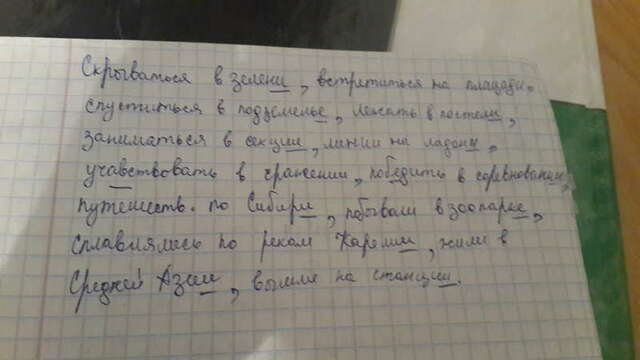 Скрываться в зелени, встретиться на площади,
спуститься в подземелье, лежать в постели,
заниматься в секции, линии на ладони,
учавствовать в сражении, победить в соревновании,
путешеств. по Сибири, побывали в зоопарке,
сплавлялись по рекам Карелии, жили в
Средней Азии, вышли на станции.